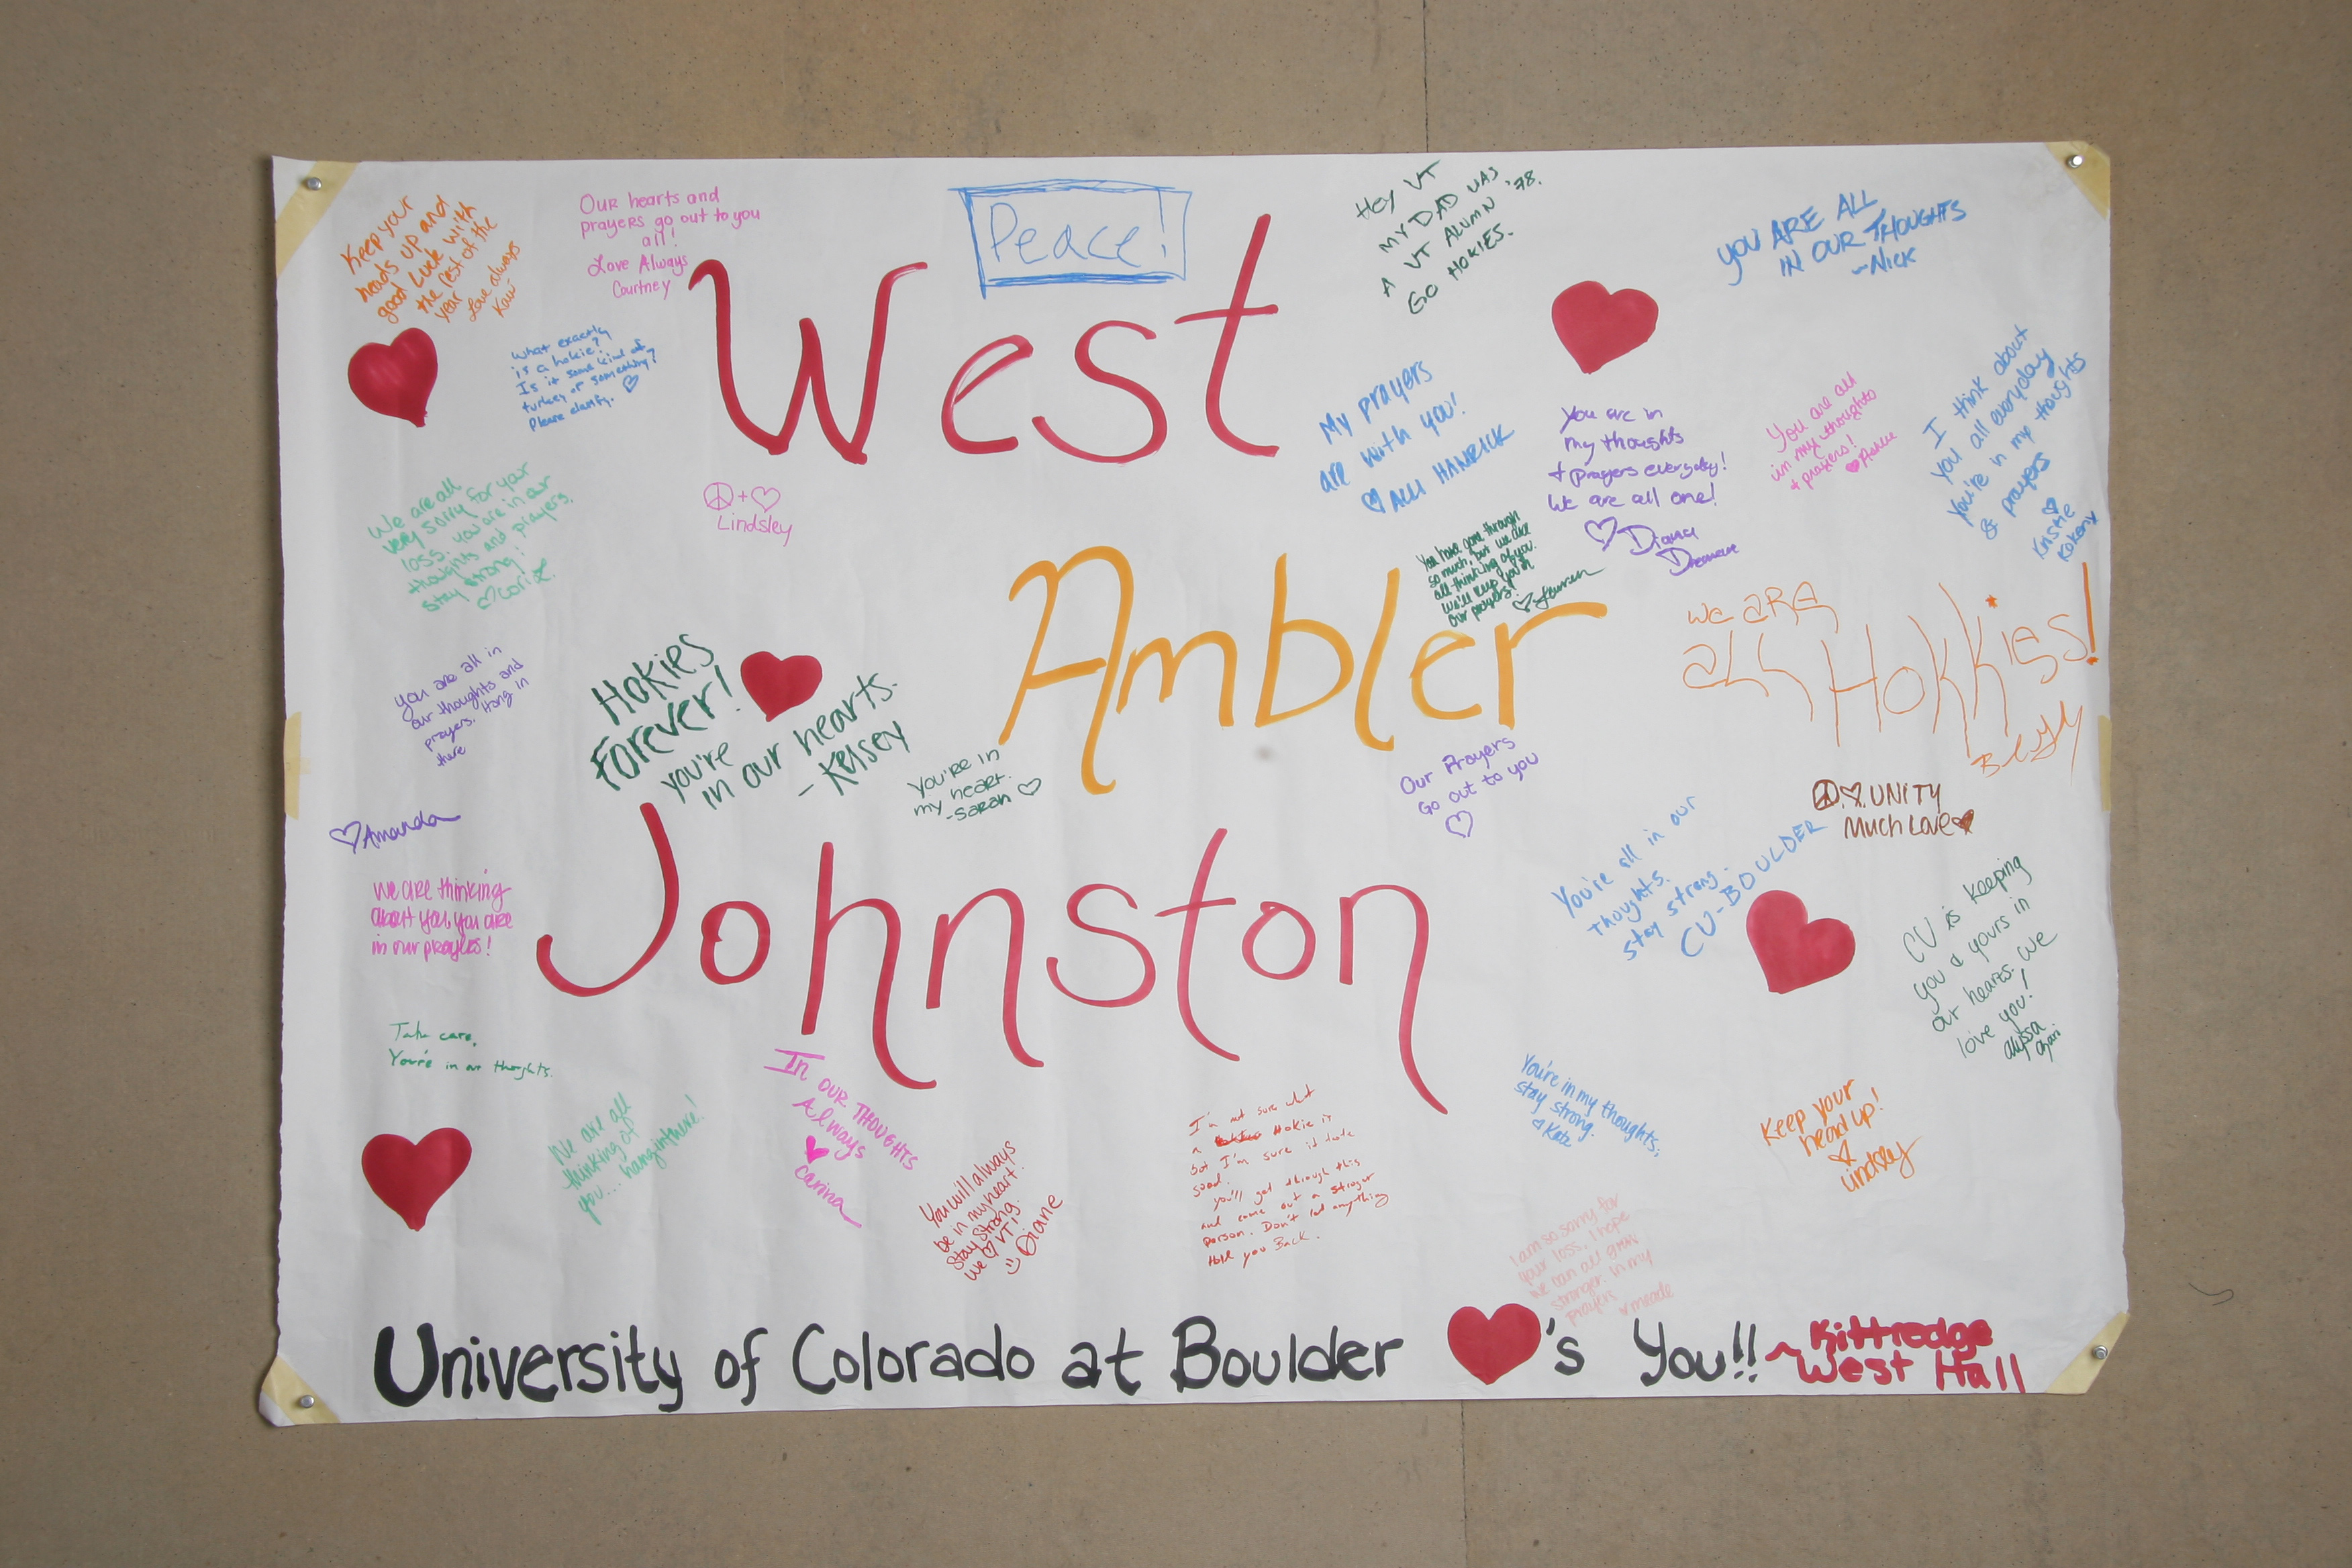 Keep your
heads up and
good luck with
the rest of the
year
Love always
Our hearts and
prayers go out to you
all!
Love Always
Courtney
Peace!
Hey VT
MY DAD WAS
A VT ALUMN '78.
GO HOKIES.
YOU ARE ALL
IN OUR THOUGHTS
-Nick
West
What exactly
is a hokie?
Is it some kind of
turkey or something?
Please clarify.
My prayers
are with you!
You are in
my thoughts
+ prayers everyday!
We are all one!
Diana
You are all
in my thoughts
+ prayers!
I think about
you all everyday
You're in my thoughts
& prayers
Kristie
We are all
very sorry for your
loss. you are in our
thoughts and prayers.
stay strong!
+
Lindsley
You have gone through
so much, but we are
all thinking of you.
We'll keep you in
our prayers!
Lauren
Ambler
We are
all Hokkies!
You are all in
our thoughts and
prayers. Hang in
there
Amanda
Hokies
Forever!
you're
in our hearts.
- Kelsey
You're in
my heart.
-Sarah
Our Prayers
Go out to you
UNITY
Much Love
Johnston
You're all in our
thoughts.
stay strong.
CU-BOULDER
We are thinking
about you, you are
in our prayers!
CU is keeping
you & yours in
our hearts. We
love you!
Alyssa
Take care.
You're in our thoughts.
We are all
thinking of
you... hang in there!
In our THOUGHTS
Always
Carina
You will always
be in my heart.
Stay Strong.
We VT!
Diane
I'm not sure what
a Hokie is
but I'm sure it'd taste
good.
you'll get through this
and come out a stronger
person. Don't let anything
Hold you Back.
You're in my thoughts,
stay strong.
Kate
Keep your
head up!
Lindsley
I am so sorry for
your loss, I hope
we can all grow
stronger. in my
prayers
University of Colorado at Boulder 's You!! ~Kittredge
West Hall